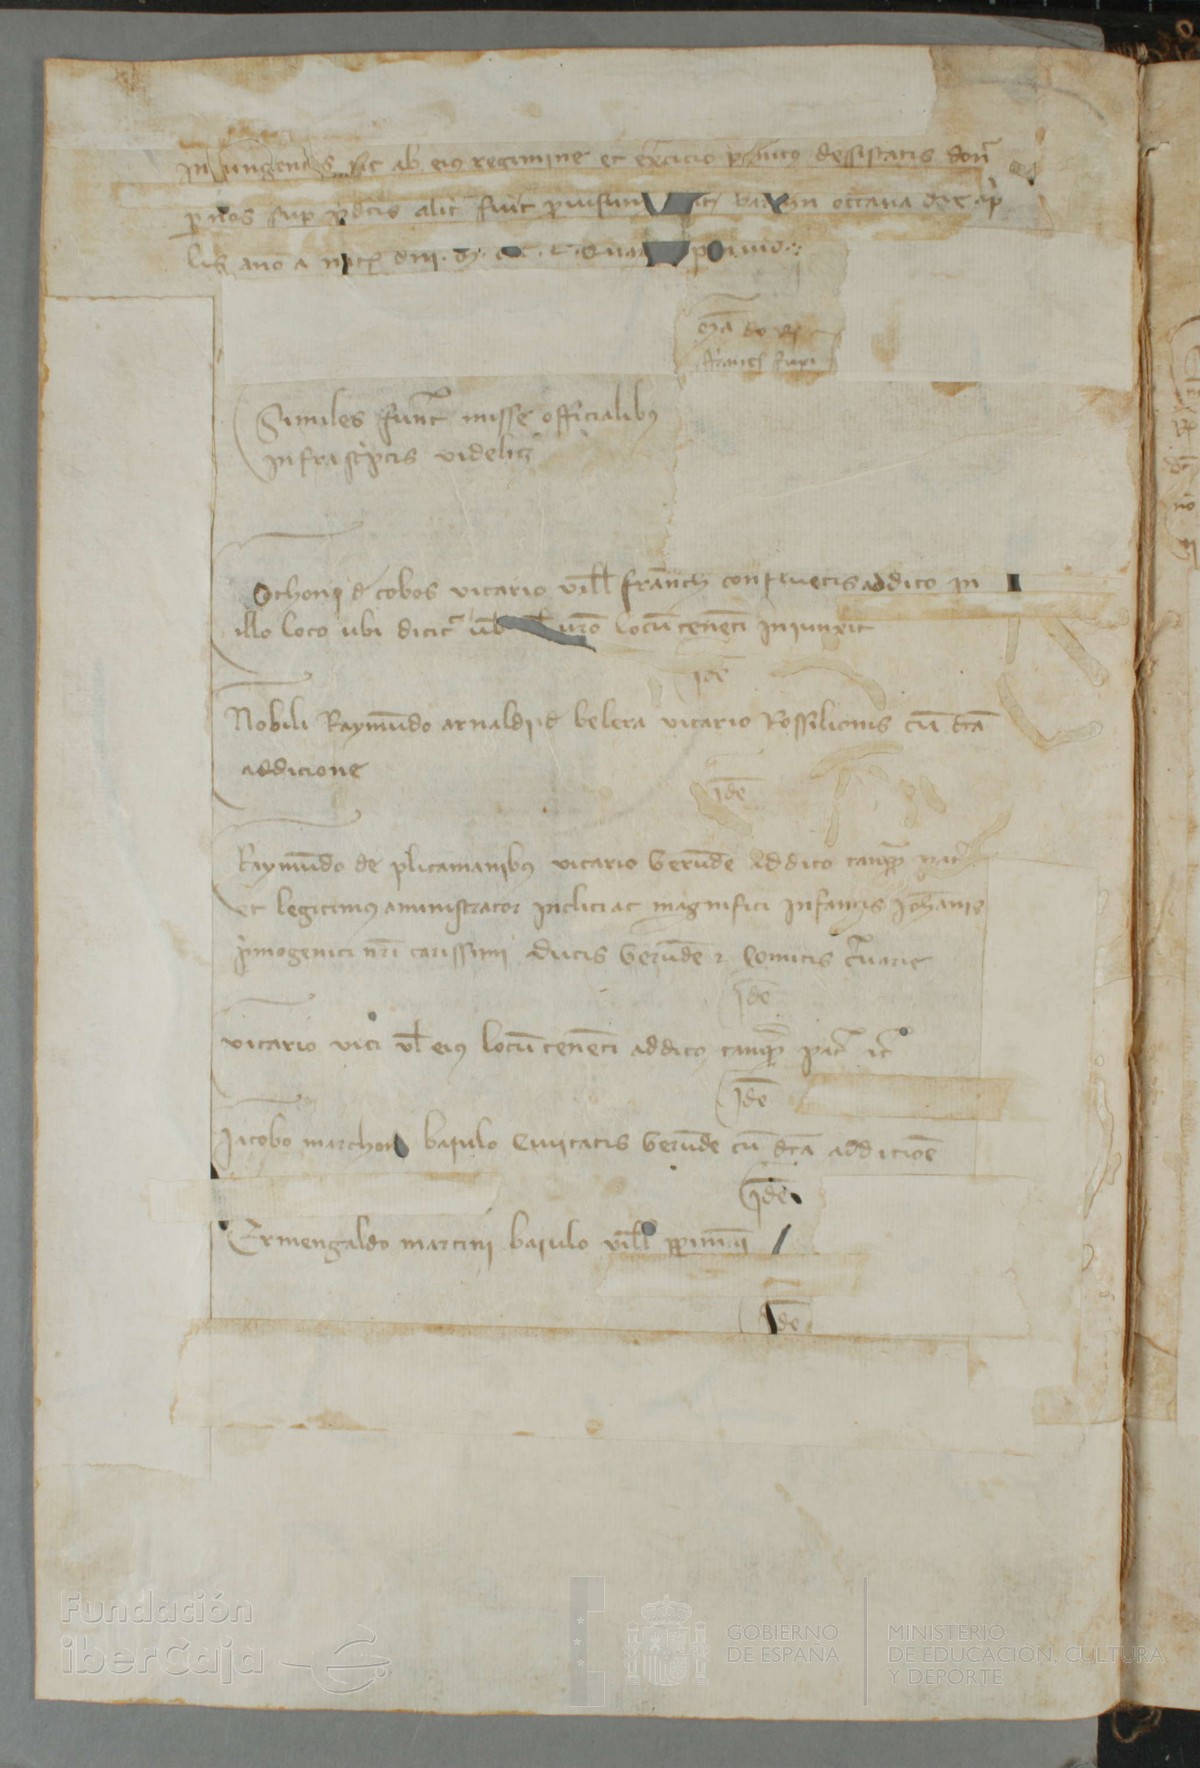 Injungendis sic ab eius regimine et exercicio penitus dessistatis donec
per nos sup pdcis alit fuit prouisum barchn octaua die apri
lis anno a natz dni Mº CCCº Lº quarto
Idem
ffrancs fuxi
Similes fuert misse officialibus
infrascriptis videlicet
Othoni de cobos vicario ville franch confluetis addito in
illo loco ubi dicit uro locutenenti iniunxit
Ide
Nobili Raymundo arnaldi de belera vicario Rossilionis cu dca
addicione
Ide
Raymundo de plicamanibus vicario Gerunde addito tanqm pat
et legitimus aministrator incliti ac magnifici infantis Johanis
primogeniti nri carissimi ducis Gerunde et Comitis Cuarie
Ide
vicario vici vl eius locutenenti addito tanqm pat etc
Ide
Jacobo marchon baiulo Ciuitatis Gerunde cu dca addicione
Ide
Ermengaldo martini baiulo ville ppiniani
Ide
Fundación
iberCaja
GOBIERNO
DE ESPAÑA
MINISTERIO
DE EDUCACIÓN, CULTURA
Y DEPORTE